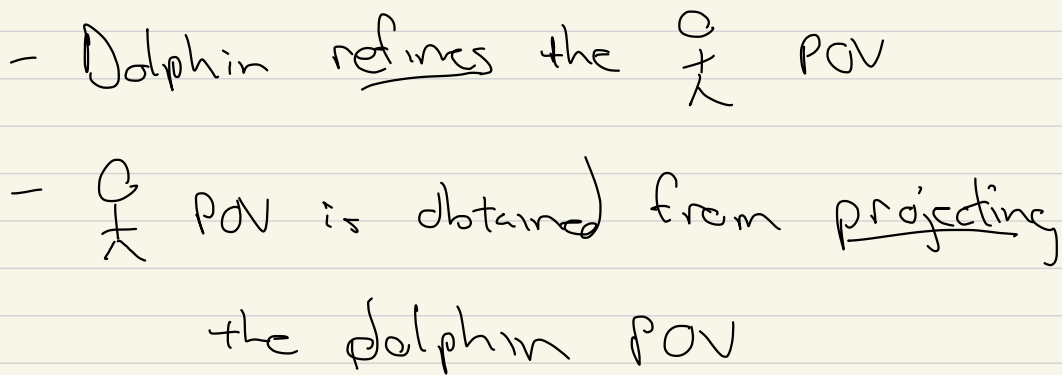 - Dolphin refines the POV
- POV is obtained from projecting
the dolphin POV